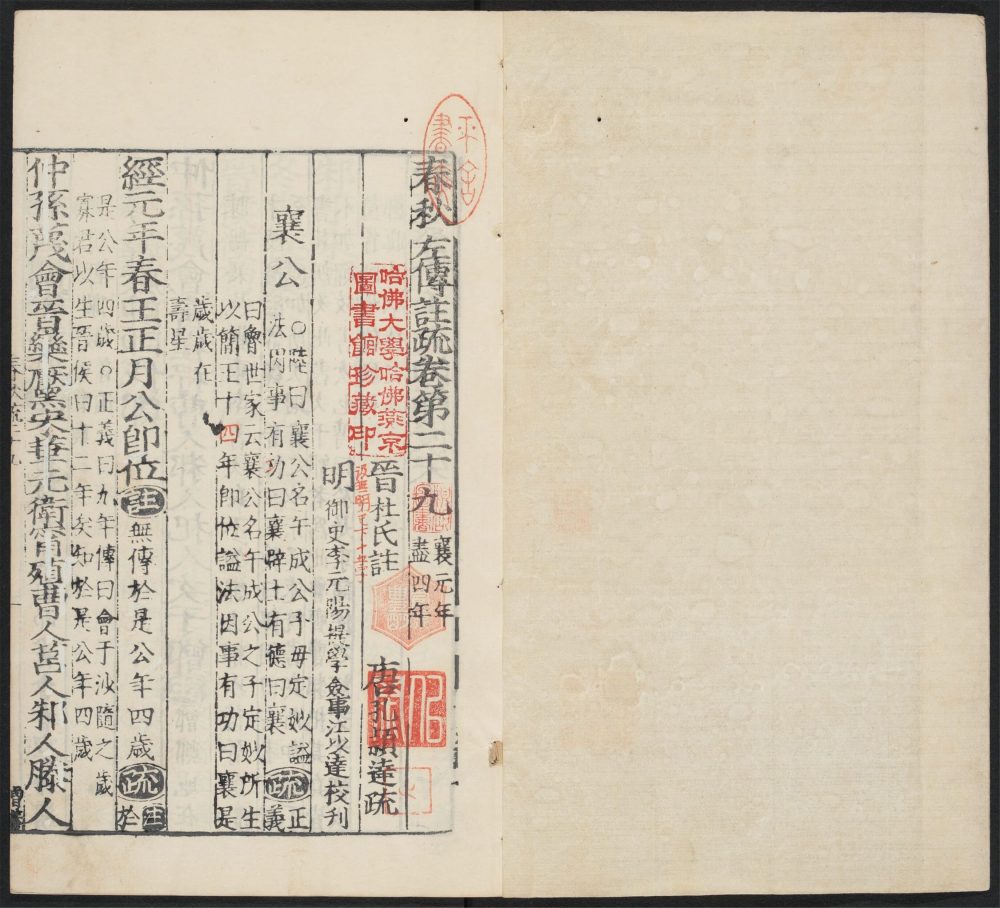 春秋左傳註疏卷第二十九 襄元年
盡四年
晉杜氏註 唐孔穎達疏
明御史李元陽提學僉事江以達校刋
襄公 ○陸曰襄公名午成公子毋定姒謚
法因事有功曰襄辟土有德曰襄 疏 正
義
曰魯世家云襄公名午成公之子定姒所生
以簡王十四年即位謚法因事有功曰襄是
歲歲在
壽星
經元年春王正月公即位 註 無傳於是公年四歲 疏 註
於
是公年四歲○正義曰九年傳曰會于沙隨之歲
寡君以生晉侯曰十二年矣知於是公年四歲
仲孫蔑會晉欒黶宋華元衛甯殖曹人莒人邾人滕人
哈佛大學哈佛燕京
圖書館珍藏印